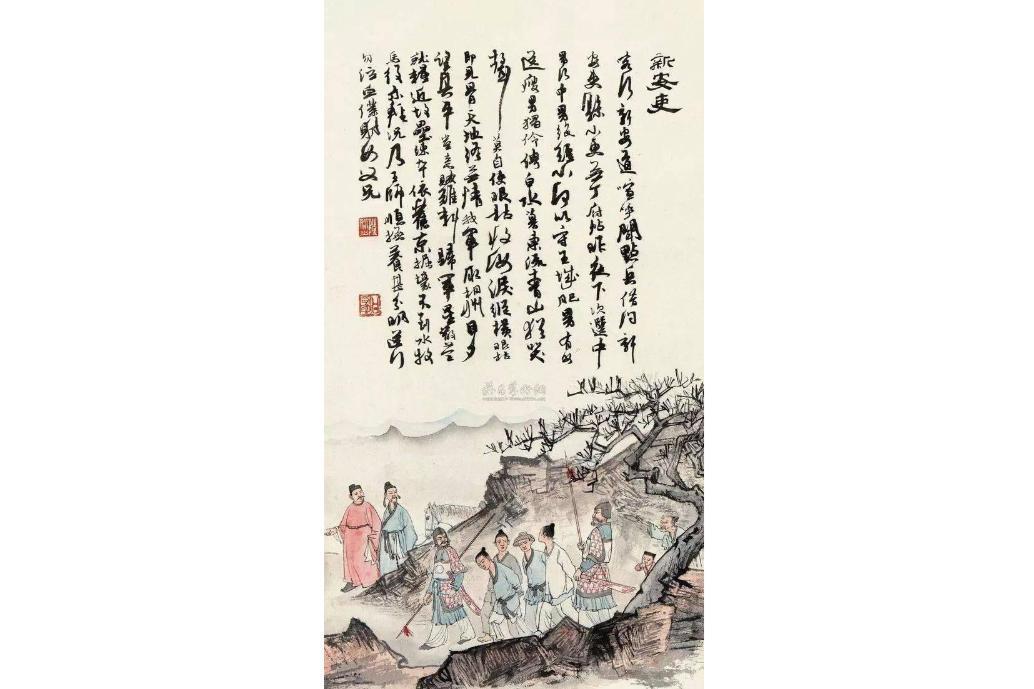 新安吏
客行新安道喧呼聞點兵借問新
安吏縣小更無丁府帖昨夜下次選中
男行中男絕短小何以守王城肥男有母
送瘦男獨伶俜白水暮東流青山猶哭
聲莫自使眼枯收汝淚縱橫眼枯
即見骨天地終無情我軍取相州日夕
望其平豈意賊難料歸軍星散營
就糧近故壘練卒依舊京掘壕不到水牧
馬役亦輕況乃王師順撫養甚分明送行
勿泣血僕射如父兄